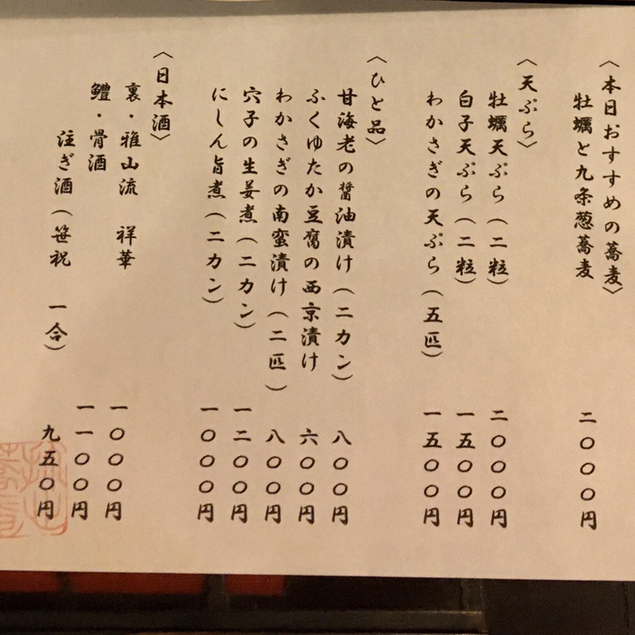 〈本日おすすめの蕎麦〉
牡蠣と九条葱蕎麦 二〇〇〇円
〈天ぷら〉
牡蠣天ぷら(二粒) 二〇〇〇円
白子天ぷら(二粒) 一五〇〇円
わかさぎの天ぷら(五匹) 一五〇〇円
〈ひと品〉
甘海老の醤油漬け(二カン) 八〇〇円
ふくゆたか豆腐の西京漬け 六〇〇円
わかさぎの南蛮漬け(二匹) 八〇〇円
穴子の生姜煮(二カン) 一二〇〇円
にしん旨煮(二カン) 一〇〇〇円
〈日本酒〉
裏・雅山流 祥華 一〇〇〇円
鱧・骨酒 一一〇〇円
注ぎ酒(笹祝 一合) 九五〇円